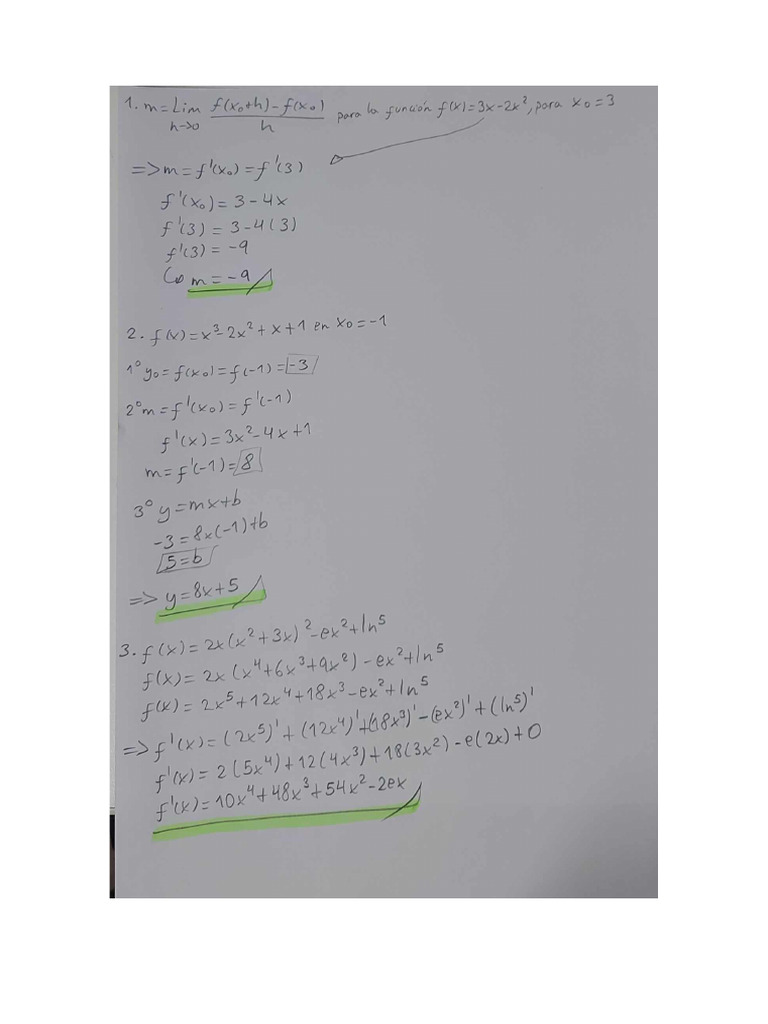 1. m = Lim h→0 f(x₀+h) - f(x₀) / h para la función f(x) = 3x - 2x², para x₀ = 3
=> m = f'(x₀) = f'(3)
f'(x₀) = 3 - 4x
f'(3) = 3 - 4(3)
f'(3) = -9
m = -9
2. f(x) = x³ - 2x² + x + 1 en x₀ = -1
1° y₀ = f(x₀) = f(-1) = -3
2° m = f'(x₀) = f'(-1)
f'(x) = 3x² - 4x + 1
m = f'(-1) = 8
3° y = mx + b
-3 = 8x(-1) + b
5 = b
=> y = 8x + 5
3. f(x) = 2x(x² + 3x)² - ex² + ln⁵
f(x) = 2x(x⁴ + 6x³ + 9x²) - ex² + ln⁵
f(x) = 2x⁵ + 12x⁴ + 18x³ - ex² + ln⁵
=> f'(x) = (2x⁵)' + (12x⁴)' + (18x³)' - (ex²)' + (ln⁵)'
f'(x) = 2(5x⁴) + 12(4x³) + 18(3x²) - e(2x) + 0
f'(x) = 10x⁴ + 48x³ + 54x² - 2ex